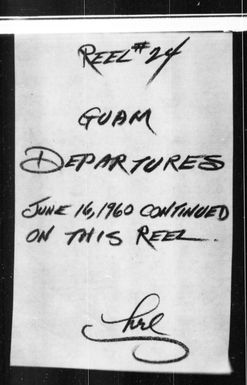 REEL #24
GUAM
DEPARTURES
JUNE 16, 1960 CONTINUED
ON THIS REEL.